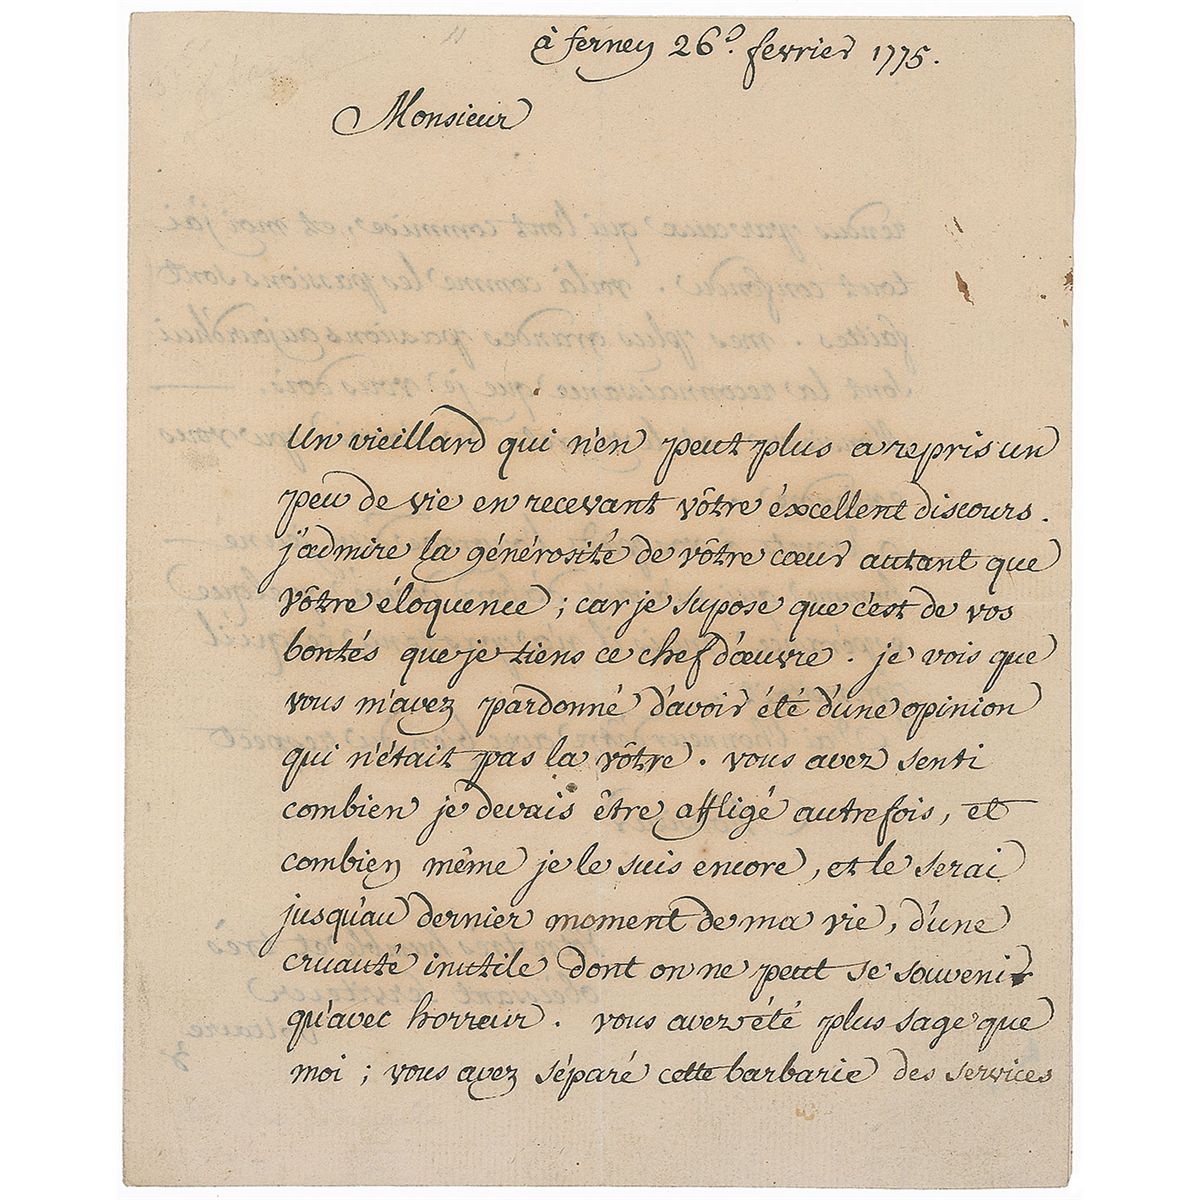 à ferney 26e. fevrier 1775.
Monsieur
Un vieillard qui n'en peut plus a repris un
peu de vie en recevant vôtre éxcellent discours.
j'admire la générosité de vôtre cœur autant que
vôtre éloquence ; car je supose que c'est de vos
bontés que je tiens ce chef d'œuvre. je vois que
vous m'avez pardonné d'avoir été d'une opinion
qui n'était pas la vôtre. vous avez senti
combien je devais être affligé autrefois, et
combien même je le suis encore, et le serai
jusqu'au dernier moment de ma vie, d'une
cruauté inutile dont on ne peut se souvenir
qu'avec horreur. vous avez été plus sage que
moi ; vous avez séparé cette barbarie des services